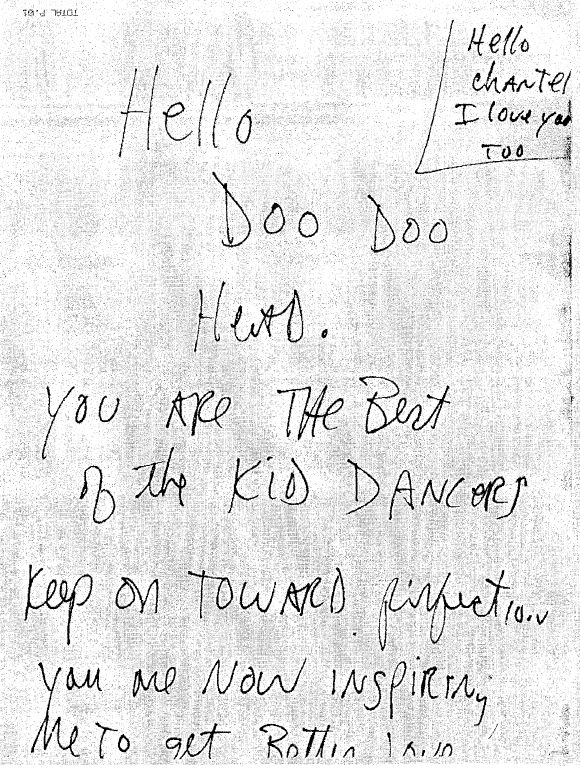 TOTAL P.01
Hello
chANTel
I love you
TOO
Hello
Doo Doo
HeAD.
YOU ARe THe Best
of the KiD DANCERS
Keep ON TOWARD perfection
you are NOW INSPIRINg
Me To get